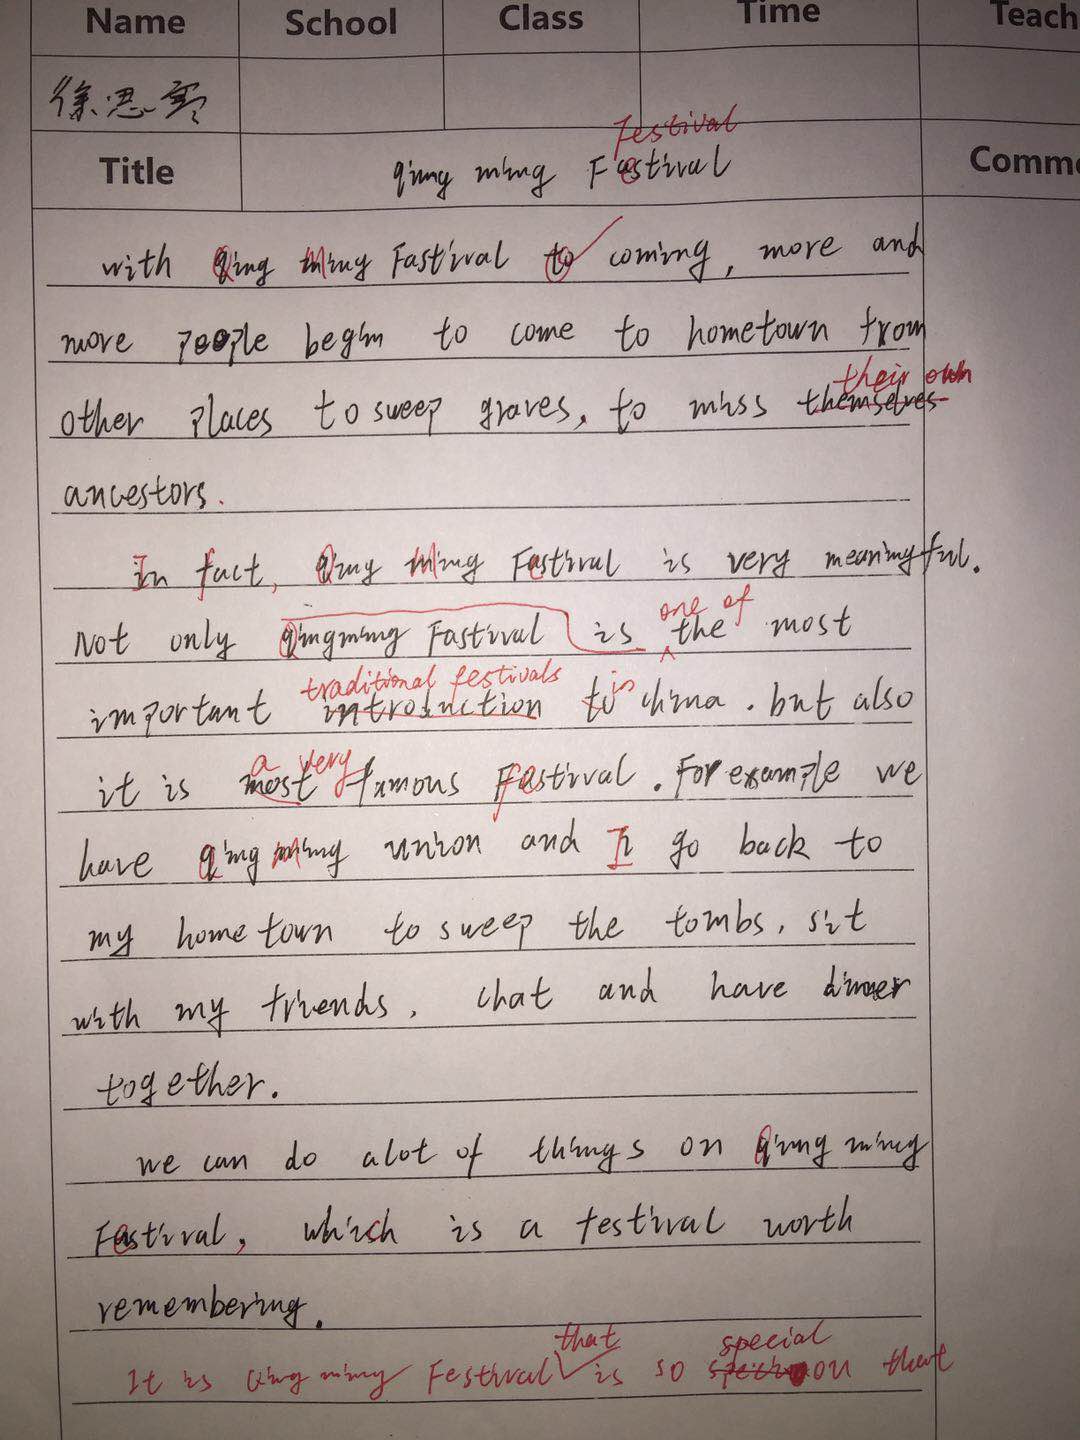 Name School Class Time Teach
徐思
Festival
Title qing ming Festival Comme
with Qing Ming Fastival to coming, more and
more people begin to come to hometown from
their own
other places to sweep graves, to miss themselves
ancestors.
In fact, Qing Ming Festival is very meaningful.
one of
Not only Qingming Fastival is the most
traditional festivals in
important introduction to china. but also
a very
it is most famous Festival. For example we
have Qing Ming union and I go back to
my hometown to sweep the tombs, sit
with my friends, chat and have dinner
together.
we can do alot of things on Qing ming
Festival, which is a festival worth
remembering.
that special
It is Qing ming Festival is so on that